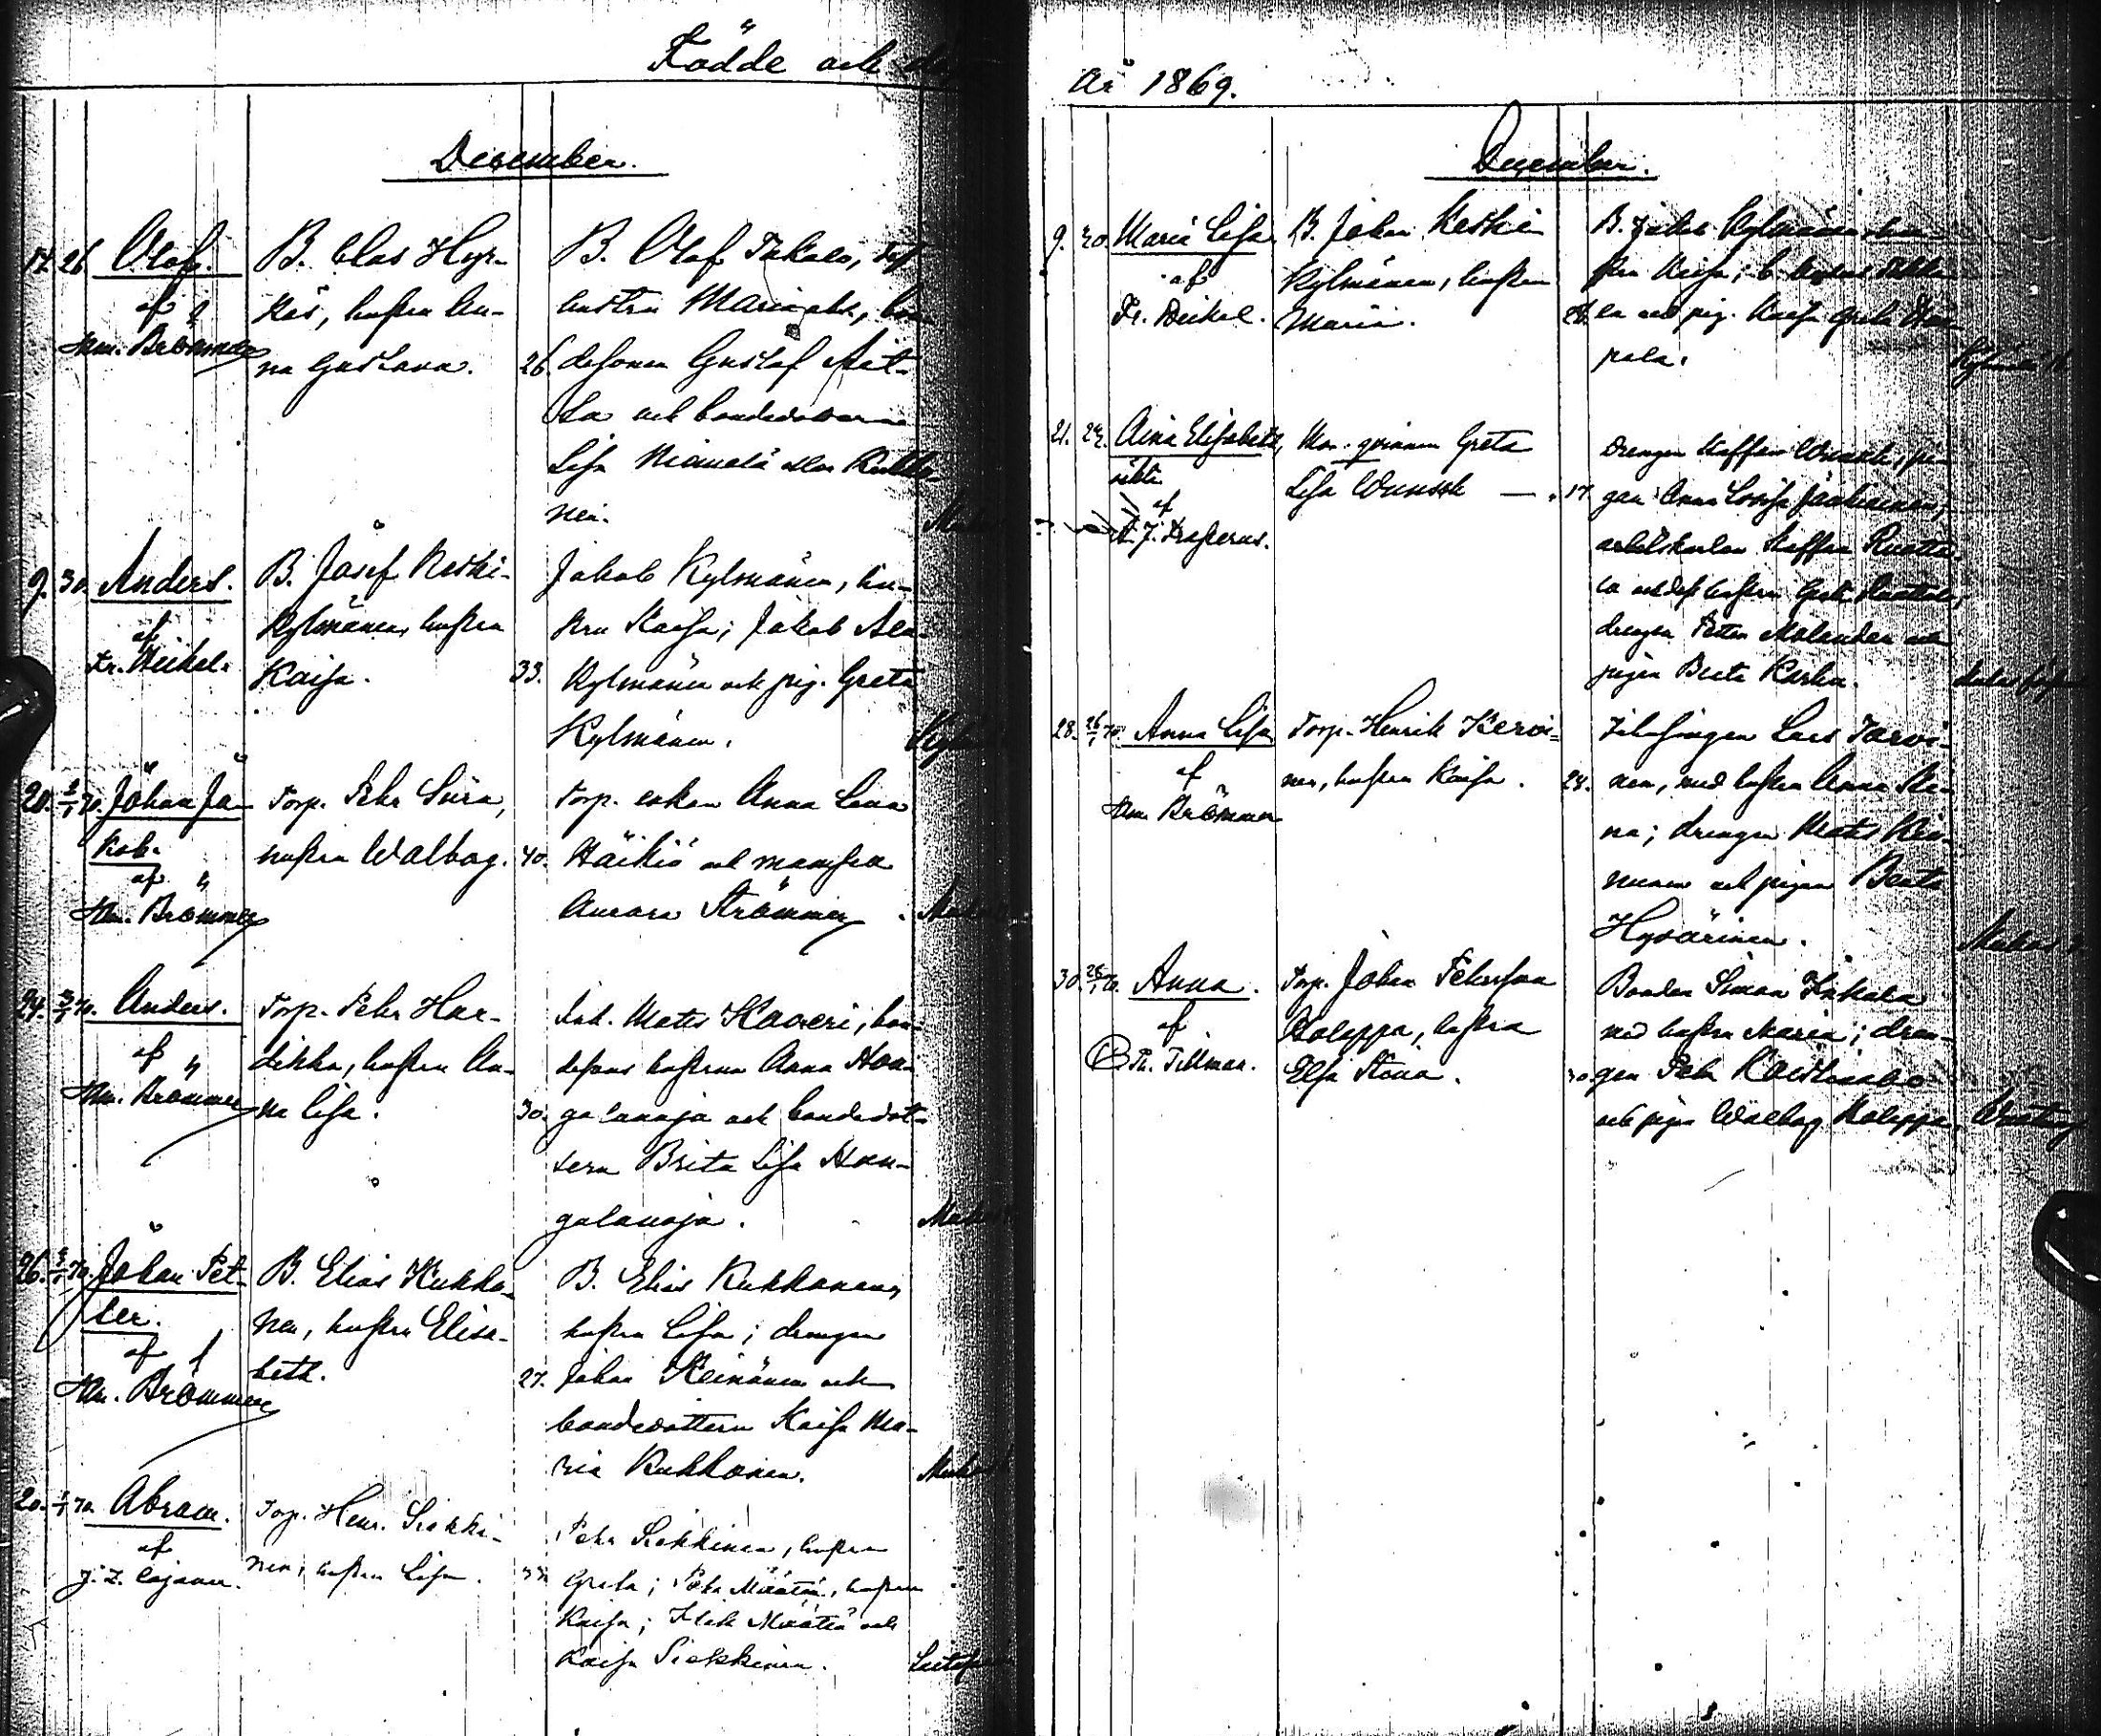 Födde och
December.
17. 26. Olof.
af
Hm. Brömmer
B. Clas Hyr-
käs, hustru An-
na Gustava.
26.
B. Olof Takalo,
hustru Mariana,
desonen Gustaf Ait-
ta och bondedottern
Lisa Niemelä eller Kukko-
nen.
9. 30. Anders.
af
Fr. Heikel.
B. Josef Keski-
Kylmänen, hustru
Kaisa.
33.
Jakob Kylmänen, hu-
stru Kaisa; Jakob Ala-
Kylmänen och pig. Greta
Kylmänen.
20. 2/1 70. Johan Ja-
kob.
af
Hm. Brömmer
Torp. Pehr Siira,
hustru Walborg.
40.
Torp. enkan Anna Lena
Häikiö och mamsell
Aurora Strömmer
24. 3/1 70. Anders.
af
Hm. Brömmer
Torp. Pehr Har-
dikka, hustru An-
na Lisa.
30.
Inh. Matts Kaveri, bon-
desons hustrun Anna Hon-
galanoja och bondedot-
tern Brita Lisa Hon-
galanoja.
26. 3/1 70. Johan Pet-
ter.
af
Hm. Brömmer
B. Elias Kukko-
nen, hustru Elisa-
beth.
27.
B. Elias Kukkonen,
hustru Lisa; drengen
Johan Keinänen och
bondedottern Kaisa Ma-
ria Kukkonen.
20. 1/1 70. Abram.
af
J. Z. Cajaner.
Torp. Henr. Siekki-
nen, hustru Lisa.
33.
Pehr Siekkinen, hustru
Greta; Pehr Määttä, hustru
Kaisa; Erik Määttä och
Kaisa Siekkinen.
år 1869.
December.
9. 30. Maria Lisa
af
Fr. Heikel.
B. Johan Keski-
Kylmänen, hustru
Maria.
28.
B. Jakob Kylmänen, hu-
stru Kaisa; b.
la och pig. Kaisa Greta
pala.
21. 24. Aina Elisabeth,
oäkta
af
A. J. Prosterus.
Kon. qvinnan Greta
Lisa Wunsch —
17.
Drengen Staffan Wunsch, pi-
gan Anna Lovisa Jäskeläinen,
arbetskarlen Staffan Ruotta-
la och dess hustru Greta Ruottala,
drengen Petter Molander och
pigan Beata Karhu.
28. 26/1 70. Anna Lisa
af
Hm. Brömmer
Torp. Henrik Kervi-
nen, hustru Kaisa.
24.
Inhysingen Lars Tarvi-
nen, med hustru Anna Sti-
na; drengen Matts Kin-
nunen och pigan Beata
Hyvärinen.
30. 26/1 70. Anna.
af
Th. Tillman.
Torp. Johan Pehrsson
Holappa, hustru
Elsa Stina.
30.
Bonden Simon Takala
med hustru Maria; dren-
gen Pehr Kaistinaho
och pigan Walborg Holappa.